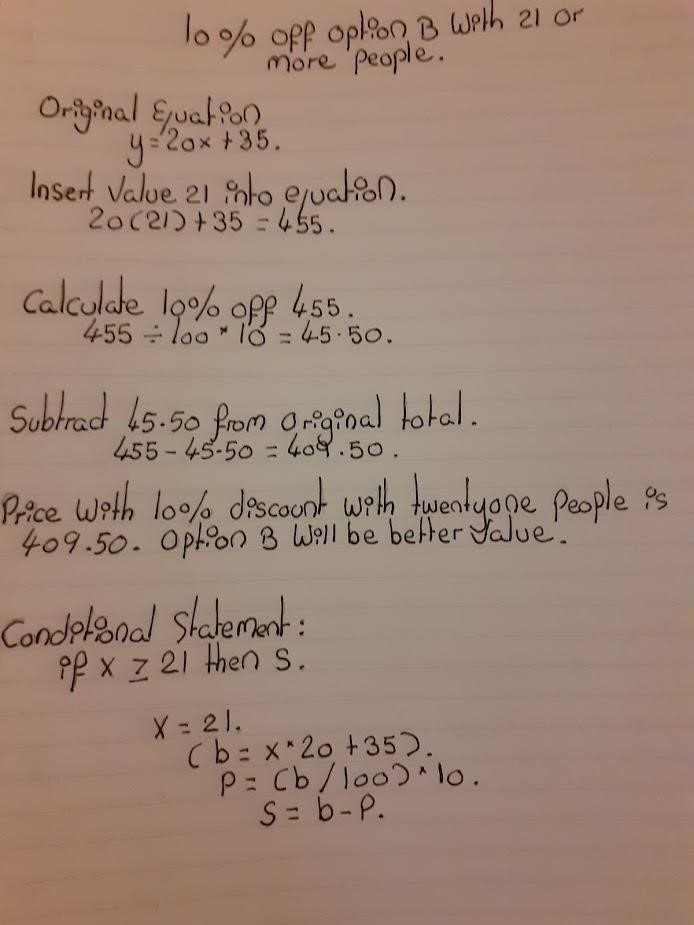 10% off option B with 21 or
more people.
Original Equation
y=20x+35.
Insert Value 21 into equation.
20(21)+35 = 455.
Calculate 10% off 455.
455 ÷ 100 * 10 = 45.50.
Subtract 45.50 from original total.
455 - 45.50 = 409.50.
Price with 10% discount with twentyone people is
409.50. Option B will be better value.
Conditional Statement:
if x ≥ 21 then S.
X = 21.
(b = x*20 +35).
P = (b/100)*10.
S = b-P.